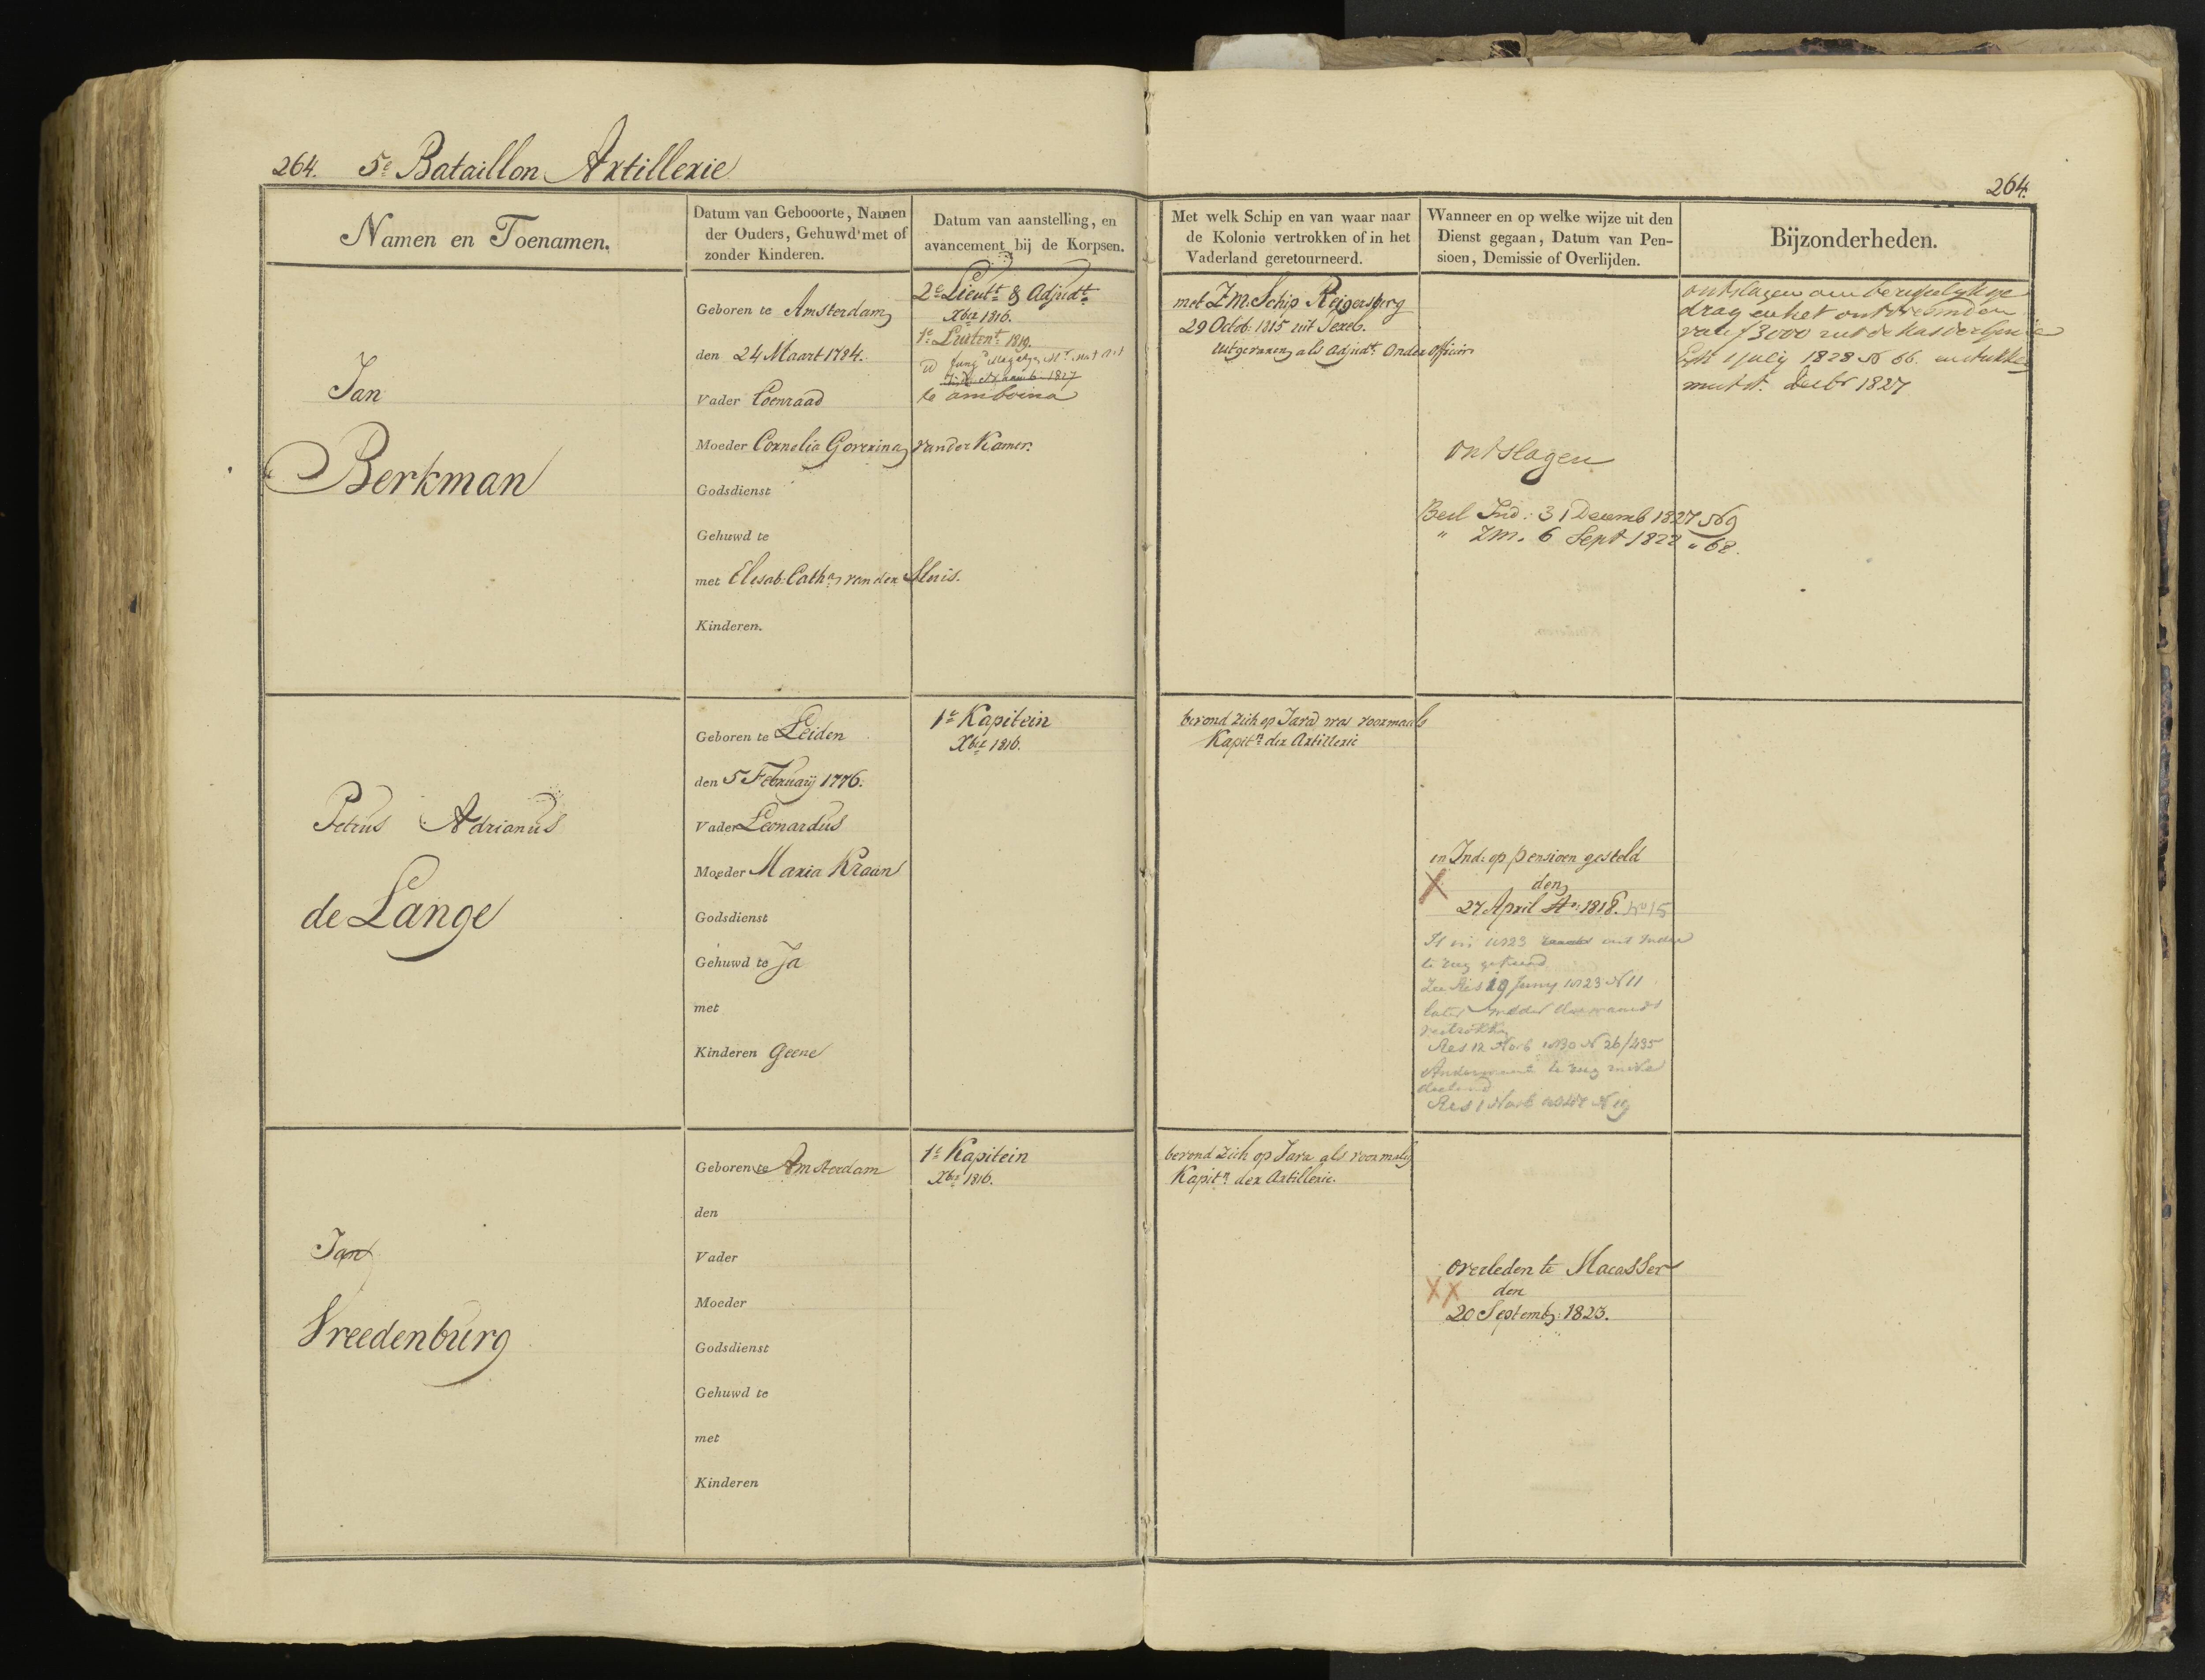 264. 5e Bataillon Artillerie
264.
Namen en Toenamen.
Datum van Gebooorte, Namen
der Ouders, Gehuwd met of
zonder Kinderen.
Datum van aanstelling, en
avancement bij de Korpsen.
Met welk Schip en van waar naar
de Kolonie vertrokken of in het
Vaderland geretourneerd.
Wanneer en op welke wijze uit den
Dienst gegaan, Datum van Pen-
sioen, Demissie of Overlijden.
Bijzonderheden.
Jan
Berkman
Geboren te Amsterdam
den 24 Maart 1784.
Vader Coenraad
Moeder Cornelia Goverina van der Kamer.
Godsdienst
Gehuwd te
met Elisab: Catha van der Sluis.
Kinderen.
2e Lieutt & Adjudt
Xber 1816.
1e Luitent 1819.
te amboina
met Z.M. Schip Reigersberg
29 Octob: 1815 uit Texel.
uitgevaren als Adjudt Onder officier
ontslagen
Besl Ind: 31 Decemb 1827 No 9
" ZM. 6 Sept 1822 " 68.
ontslagen om berispelijk ge
drag en het ontvreemden
van f 3000 uit de kas
1 July 1828 No 66.
1827
Petrus Adrianus
de Lange
Geboren te Leiden
den 5 February 1776.
Vader Leonardus
Moeder Maria Kraan
Godsdienst
Gehuwd te Ja
met
Kinderen Geene
1e Kapitein
Xber 1816.
bevond zich op Java was voormaals
Kapitn der Artillerie
in Ind: op pensioen gesteld
X den
27 April Ao 1818. No 15
Is in 1823 uit Indie
te rug gekeerd
Zie Res 19 Juny 1823 N 11
later
vertrokken
Res 12 Novb 1830 N 26/435
te rug
Res 1 Novb N 19
Jan
Vreedenburg
Geboren te Amsterdam
den
Vader
Moeder
Godsdienst
Gehuwd te
met
Kinderen
1e Kapitein
Xber 1816.
bevond zich op Java als voormalig
Kapitn der Artillerie.
overleden te Macasser
XX den
20 Septemb: 1823.